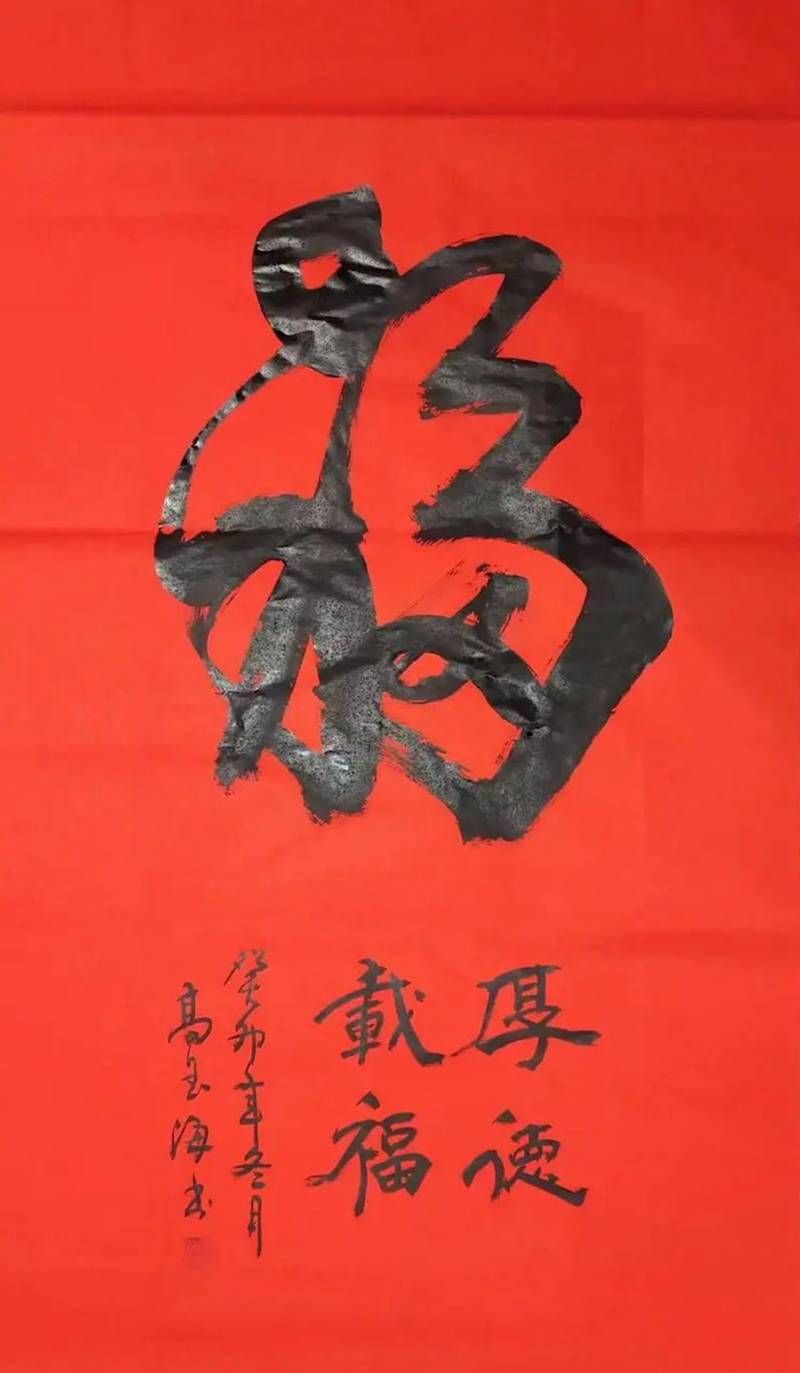 福
厚德
載福
癸卯年冬月
高玉海书